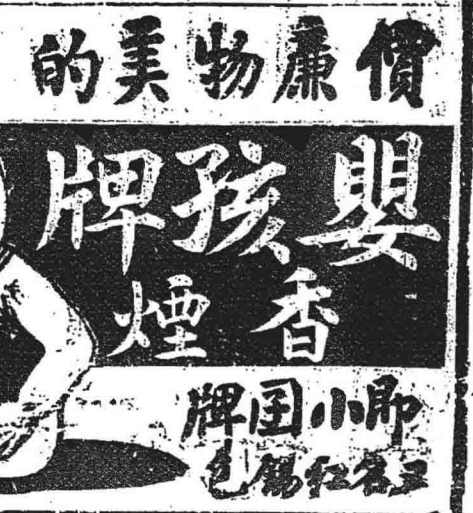 價廉物美的
嬰孩牌
香煙
即小囝牌
名紅錫包